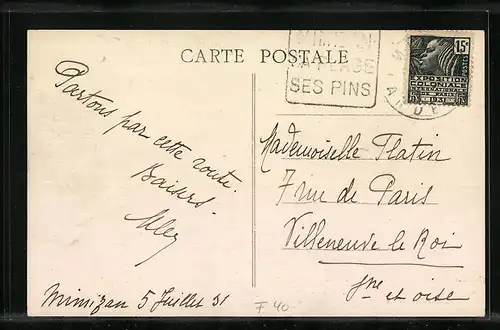 CARTE POSTALE
MIMIZAN
LA PLAGE
SES PINS
15c
POSTES
EXPOSITION
COLONIALE
INTERNATIONALE
PARIS
1931
LANDES
Partons par cette route.
Baisers.
Mademoiselle Flatin
7 rue de Paris
Villeneuve le Roi
Sne et oise
Mimizan 5 Juillet 31
F 40